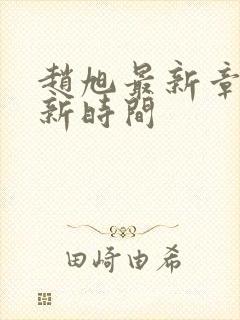 趙旭最新章
新時間
田崎由希